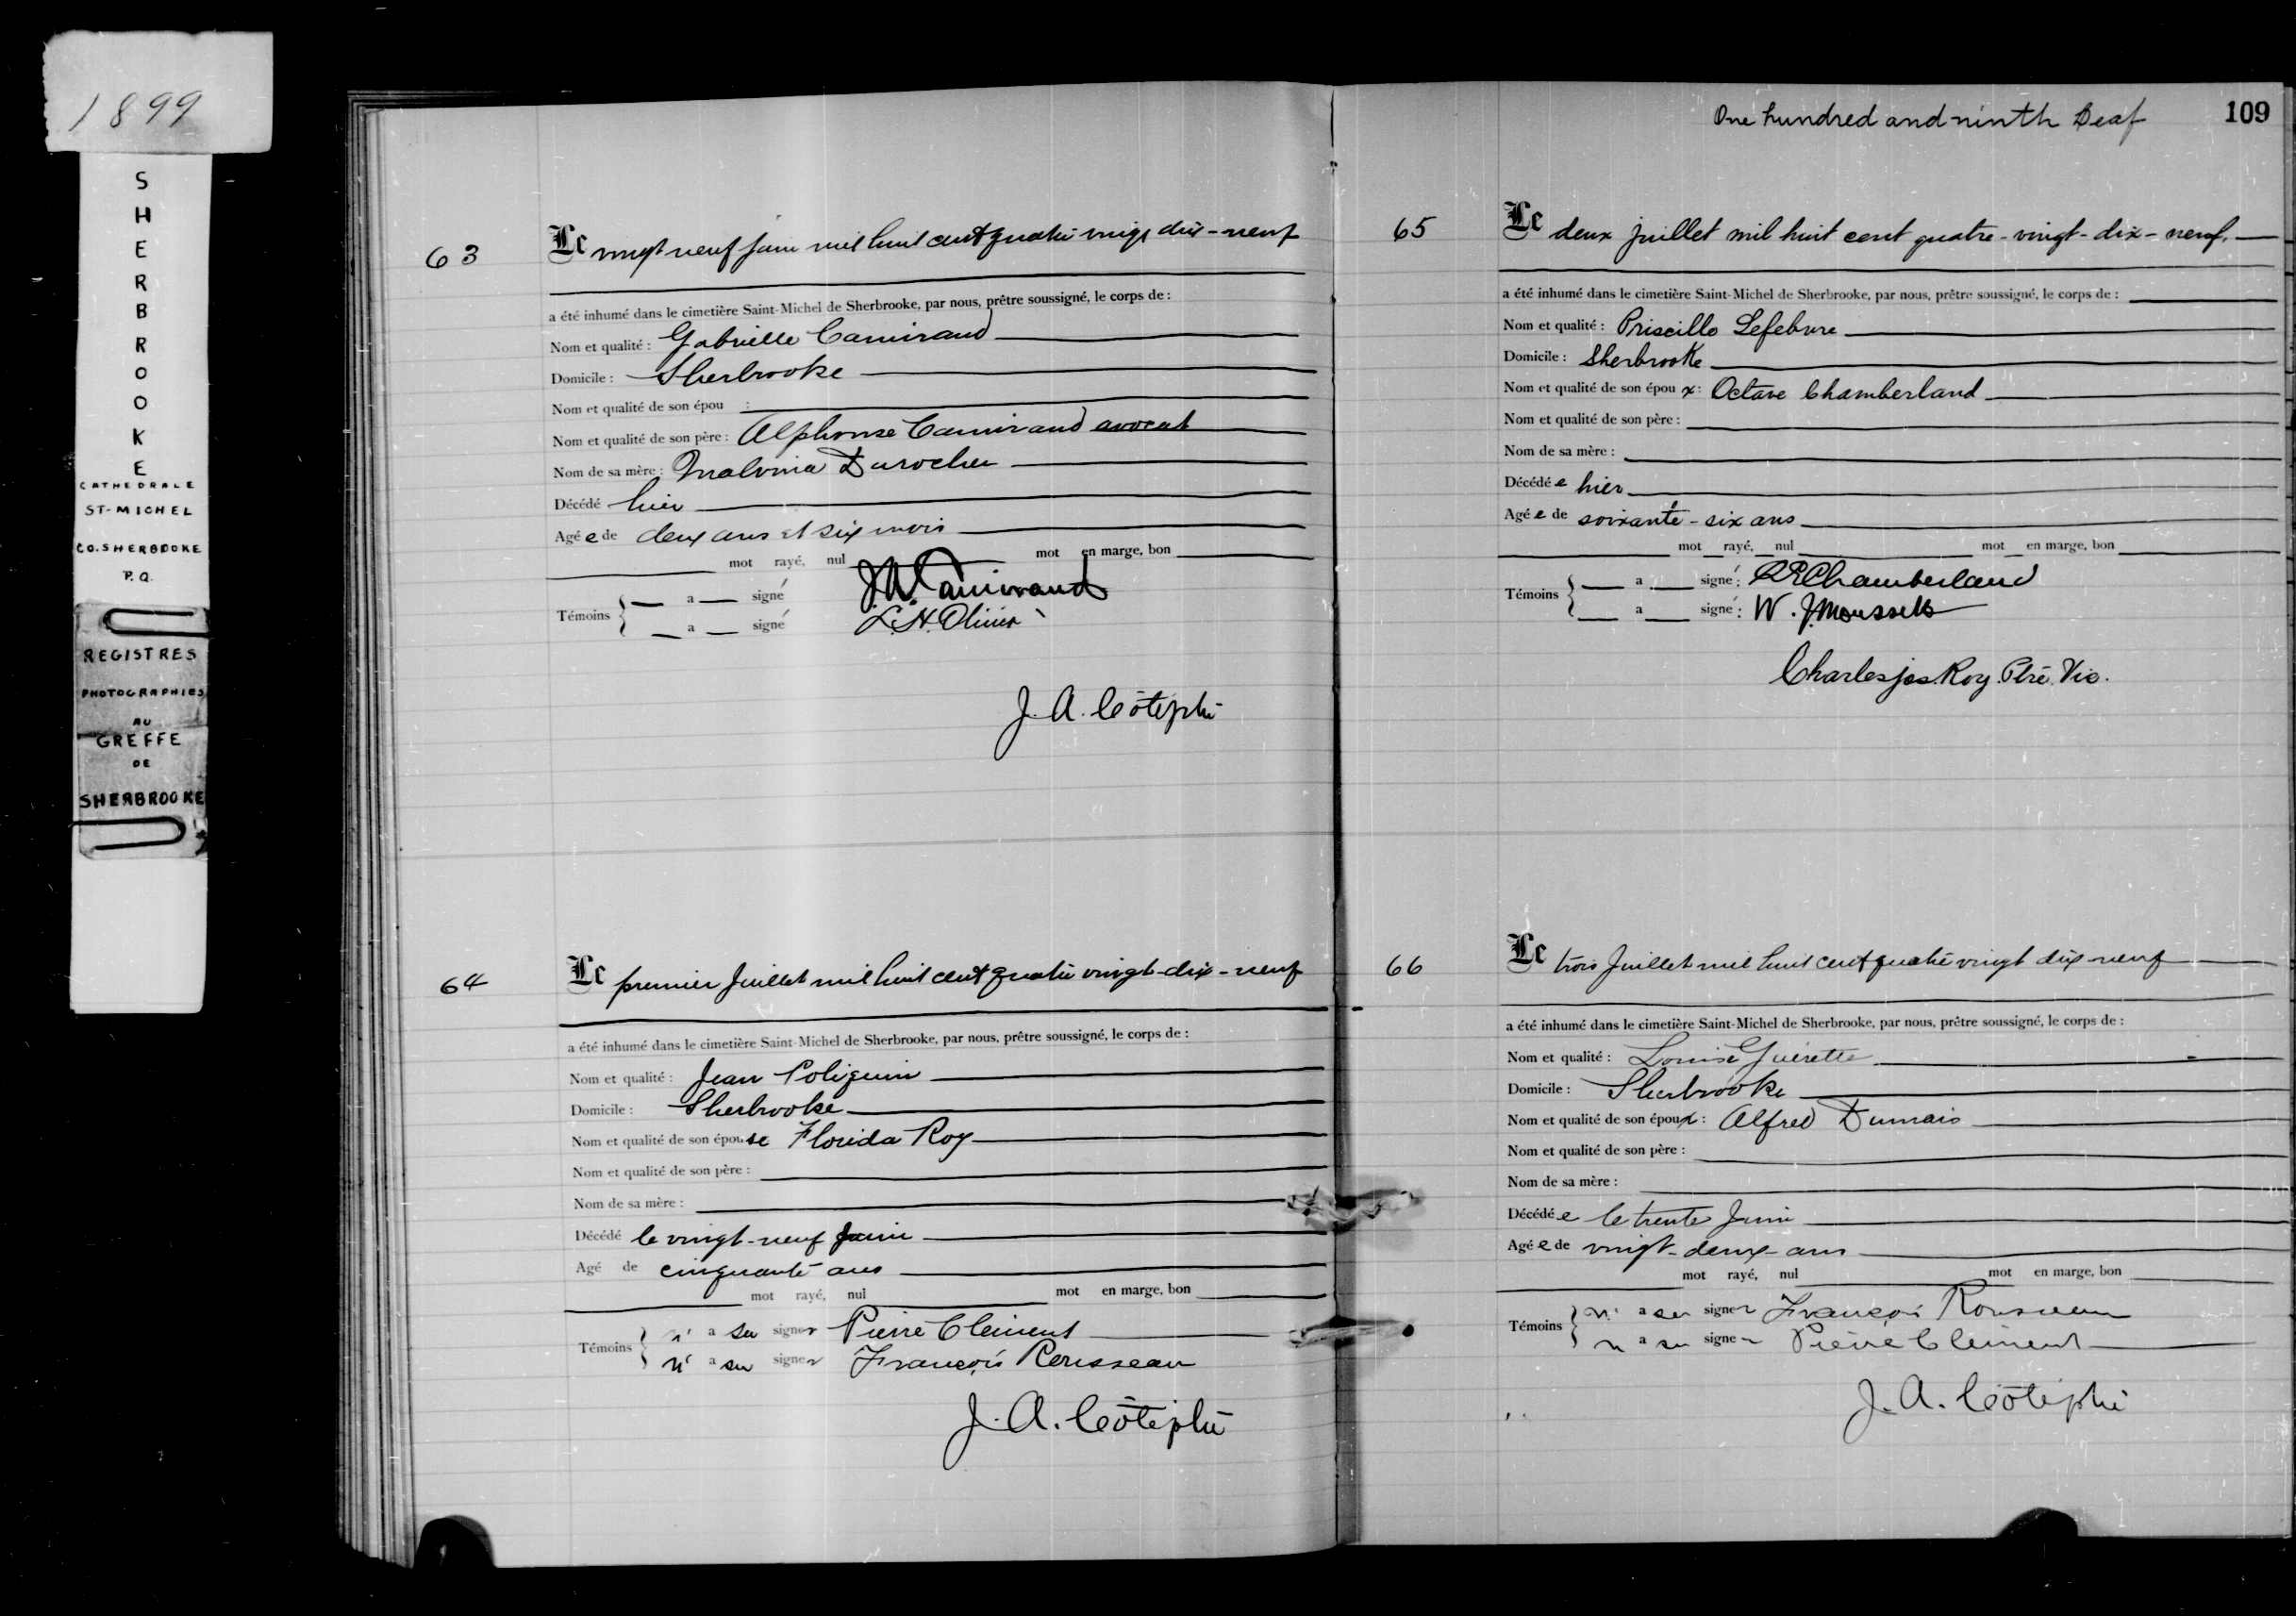 1899
SHERBROOKE
CATHEDRALE
ST-MICHEL
CO. SHERBROOKE
P.Q.
REGISTRES
PHOTOGRAPHIES
AU
GREFFE
DE
SHERBROOKE
63
Le vingt neuf juin mil huit cent quatre vingt dix-neuf
a été inhumé dans le cimetière Saint-Michel de Sherbrooke, par nous, prêtre soussigné, le corps de :
Nom et qualité : Gabrielle Camirand
Domicile : Sherbrooke
Nom et qualité de son épou :
Nom et qualité de son père : Alphonse Camirand avocat
Nom de sa mère : Malvina Durocher
Décédé hier
Agée de deux ans et six mois
mot rayé, nul mot en marge, bon
Témoins { a signé J.A. Camirand
a signé L.N. Olivier
J. A. Côté ptre
64
Le premier Juillet mil huit cent quatre vingt-dix-neuf
a été inhumé dans le cimetière Saint-Michel de Sherbrooke, par nous, prêtre soussigné, le corps de :
Nom et qualité : Jean Poliquin
Domicile : Sherbrooke
Nom et qualité de son épouse Florida Roy
Nom et qualité de son père :
Nom de sa mère :
Décédé le vingt-neuf Juin
Agé de cinquante ans
mot rayé, nul mot en marge, bon
Témoins { n' a su signer Pierre Clément
n' a su signer François Rousseau
J. A. Côté ptre
One hundred and ninth Leaf 109
65
Le deux juillet mil huit cent quatre-vingt-dix-neuf.
a été inhumé dans le cimetière Saint-Michel de Sherbrooke, par nous, prêtre soussigné, le corps de :
Nom et qualité : Priscille Lefebvre
Domicile : Sherbrooke
Nom et qualité de son époux : Octave Chamberland
Nom et qualité de son père :
Nom de sa mère :
Décédée hier
Agée de soixante-six ans
mot rayé, nul mot en marge, bon
Témoins { a signé : Chamberland
a signé : W. J.
Charles Jos. Roy. Ptre. Vic.
66
Le trois Juillet mil huit cent quatre vingt dix-neuf
a été inhumé dans le cimetière Saint-Michel de Sherbrooke, par nous, prêtre soussigné, le corps de :
Nom et qualité : Louise Guérette
Domicile : Sherbrooke
Nom et qualité de son époux : Alfred Dumais
Nom et qualité de son père :
Nom de sa mère :
Décédée le trente Juin
Agée de vingt-deux-ans
mot rayé, nul mot en marge, bon
Témoins { n' a su signer François Rousseau
n a su signer Pierre Clément
J. A. Côté ptre